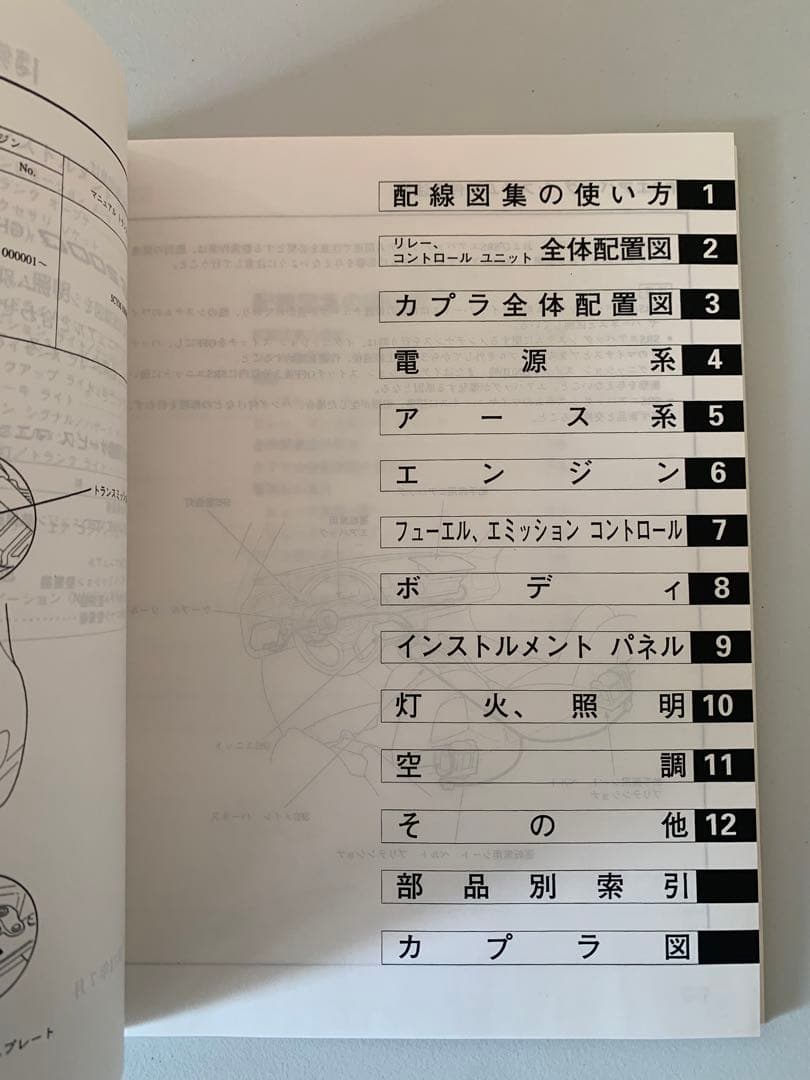 ジン
No.
マニュアル トラン
000001～
トランスミッシ
プレート
配線図集の使い方 1
リレー、
コントロール ユニット 全体配置図 2
カプラ全体配置図 3
電源系 4
アース系 5
エンジン 6
フューエル、エミッション コントロール 7
ボディ 8
インストルメント パネル 9
灯火、照明 10
空調 11
その他 12
部品別索引
カプラ図